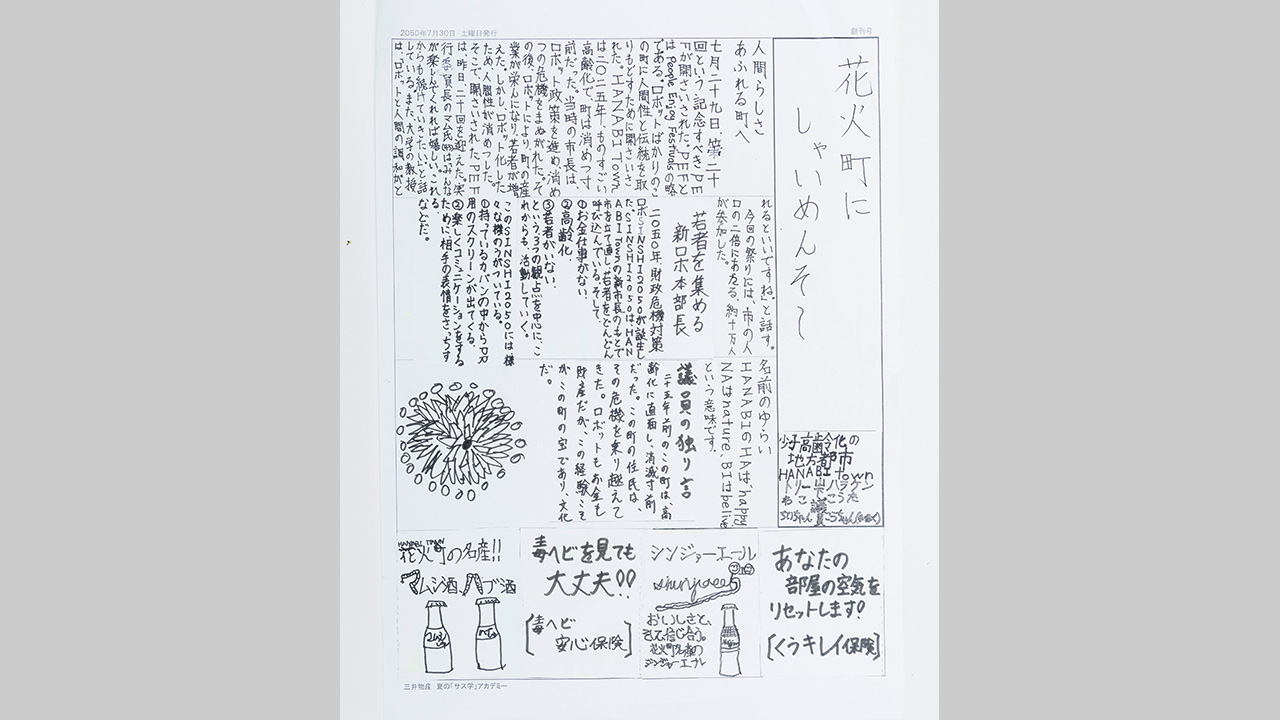 2050年7月30日 土曜日発行
創刊号
花火町に
しゃいめんそ〜
少子高齢化の
地方都市
HANABI town
人間らしさ
あふれる町へ
七月二十九日、第二十
回という記念すべきPE
Fが開さいされた。PEFと
はPeople Enjoy Festivalsの略
である。ロボットばかりのこ
の町に人間性と伝統を取
りもどすために開さいさ
れた。HANABI Town
は二〇二五年、ものすごい
高齢化で、町は消めつ寸
前だった。当時の市長は、
ロボット政策を進め、消め
つの危機をまぬがれた。そ
の後、ロボットにより、町の産
業が栄んになり、若者が増
えた。しかし、ロボット化した
ため、人間性が消めつした。
そこで、開さいされたPEF
は、昨日、二十回を迎えた。実
行委員長のマム氏は「みんな
が楽しんでくれれば嬉しい。これ
からも続けていきたい」と話
している。また、大学の教授
は、「ロボットと人間の調和がと
れるといいですね。」と話す。
今回の祭りには、市の人
口の二倍にあたる、約十万人
が参加した。
若者を集める
新ロボ本部長
二〇五〇年、財政危機対策
ロボSINSHI2050が誕生し
た。SINSHI2050は、HAN
ABI Townの新市長のもとで
市を立て直し、若者をどんどん
呼び込んでいる。そして、
①お金仕事がない、
②高齢化、
③若者がいない、
という3つの観点を中心に、こ
れからも、活動していく。
このSINSHI2050には様
々な種のうがついている。
①持っているカバンの中からPR
用のスクリーンが出てくる、
②楽しくコミュニケーションをする
ために相手の表情をさっちす
る
などだ。
名前のゆらい
HANABIのHAは、happy
NAはnature、BIはbelive
という意味です。
議員の独り言
二十五年前のこの町は、高
齢化に直面し、消滅寸前
だった。この町の住民は、
その危機を乗り越えて
きた。ロボットもお金も
財産だが、この経験こそ
が、この町の宝であり、文化
だ。
あなたの
部屋の空気を
リセットします!
[くうキレイ保険]
シンジャーエール
shinjaeel
おいしさと、
そして、信じ合う。
花火町名産の
シンジャーエール
毒ヘビを見ても
大丈夫!!
[毒ヘビ
安心保険]
HANABI TOWN
花火町の名産!!
マムシ酒、ハブ酒
三井物産 夏の「サス学」アカデミー